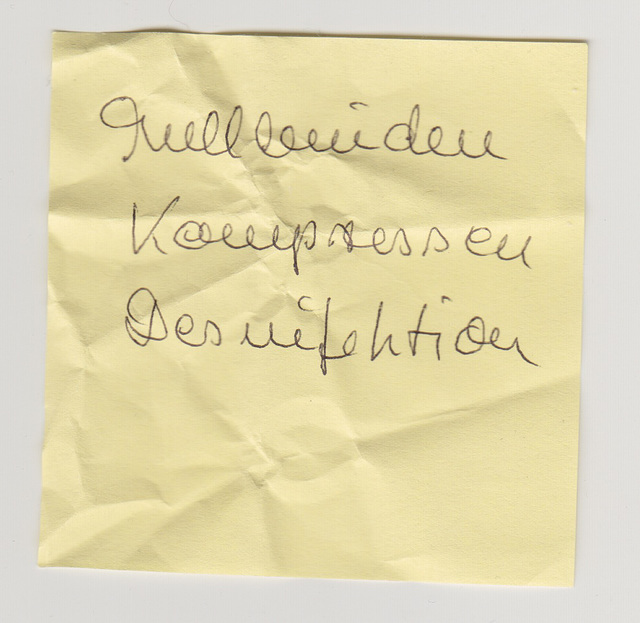 Mullbinden
Kompressen
Desinfektion